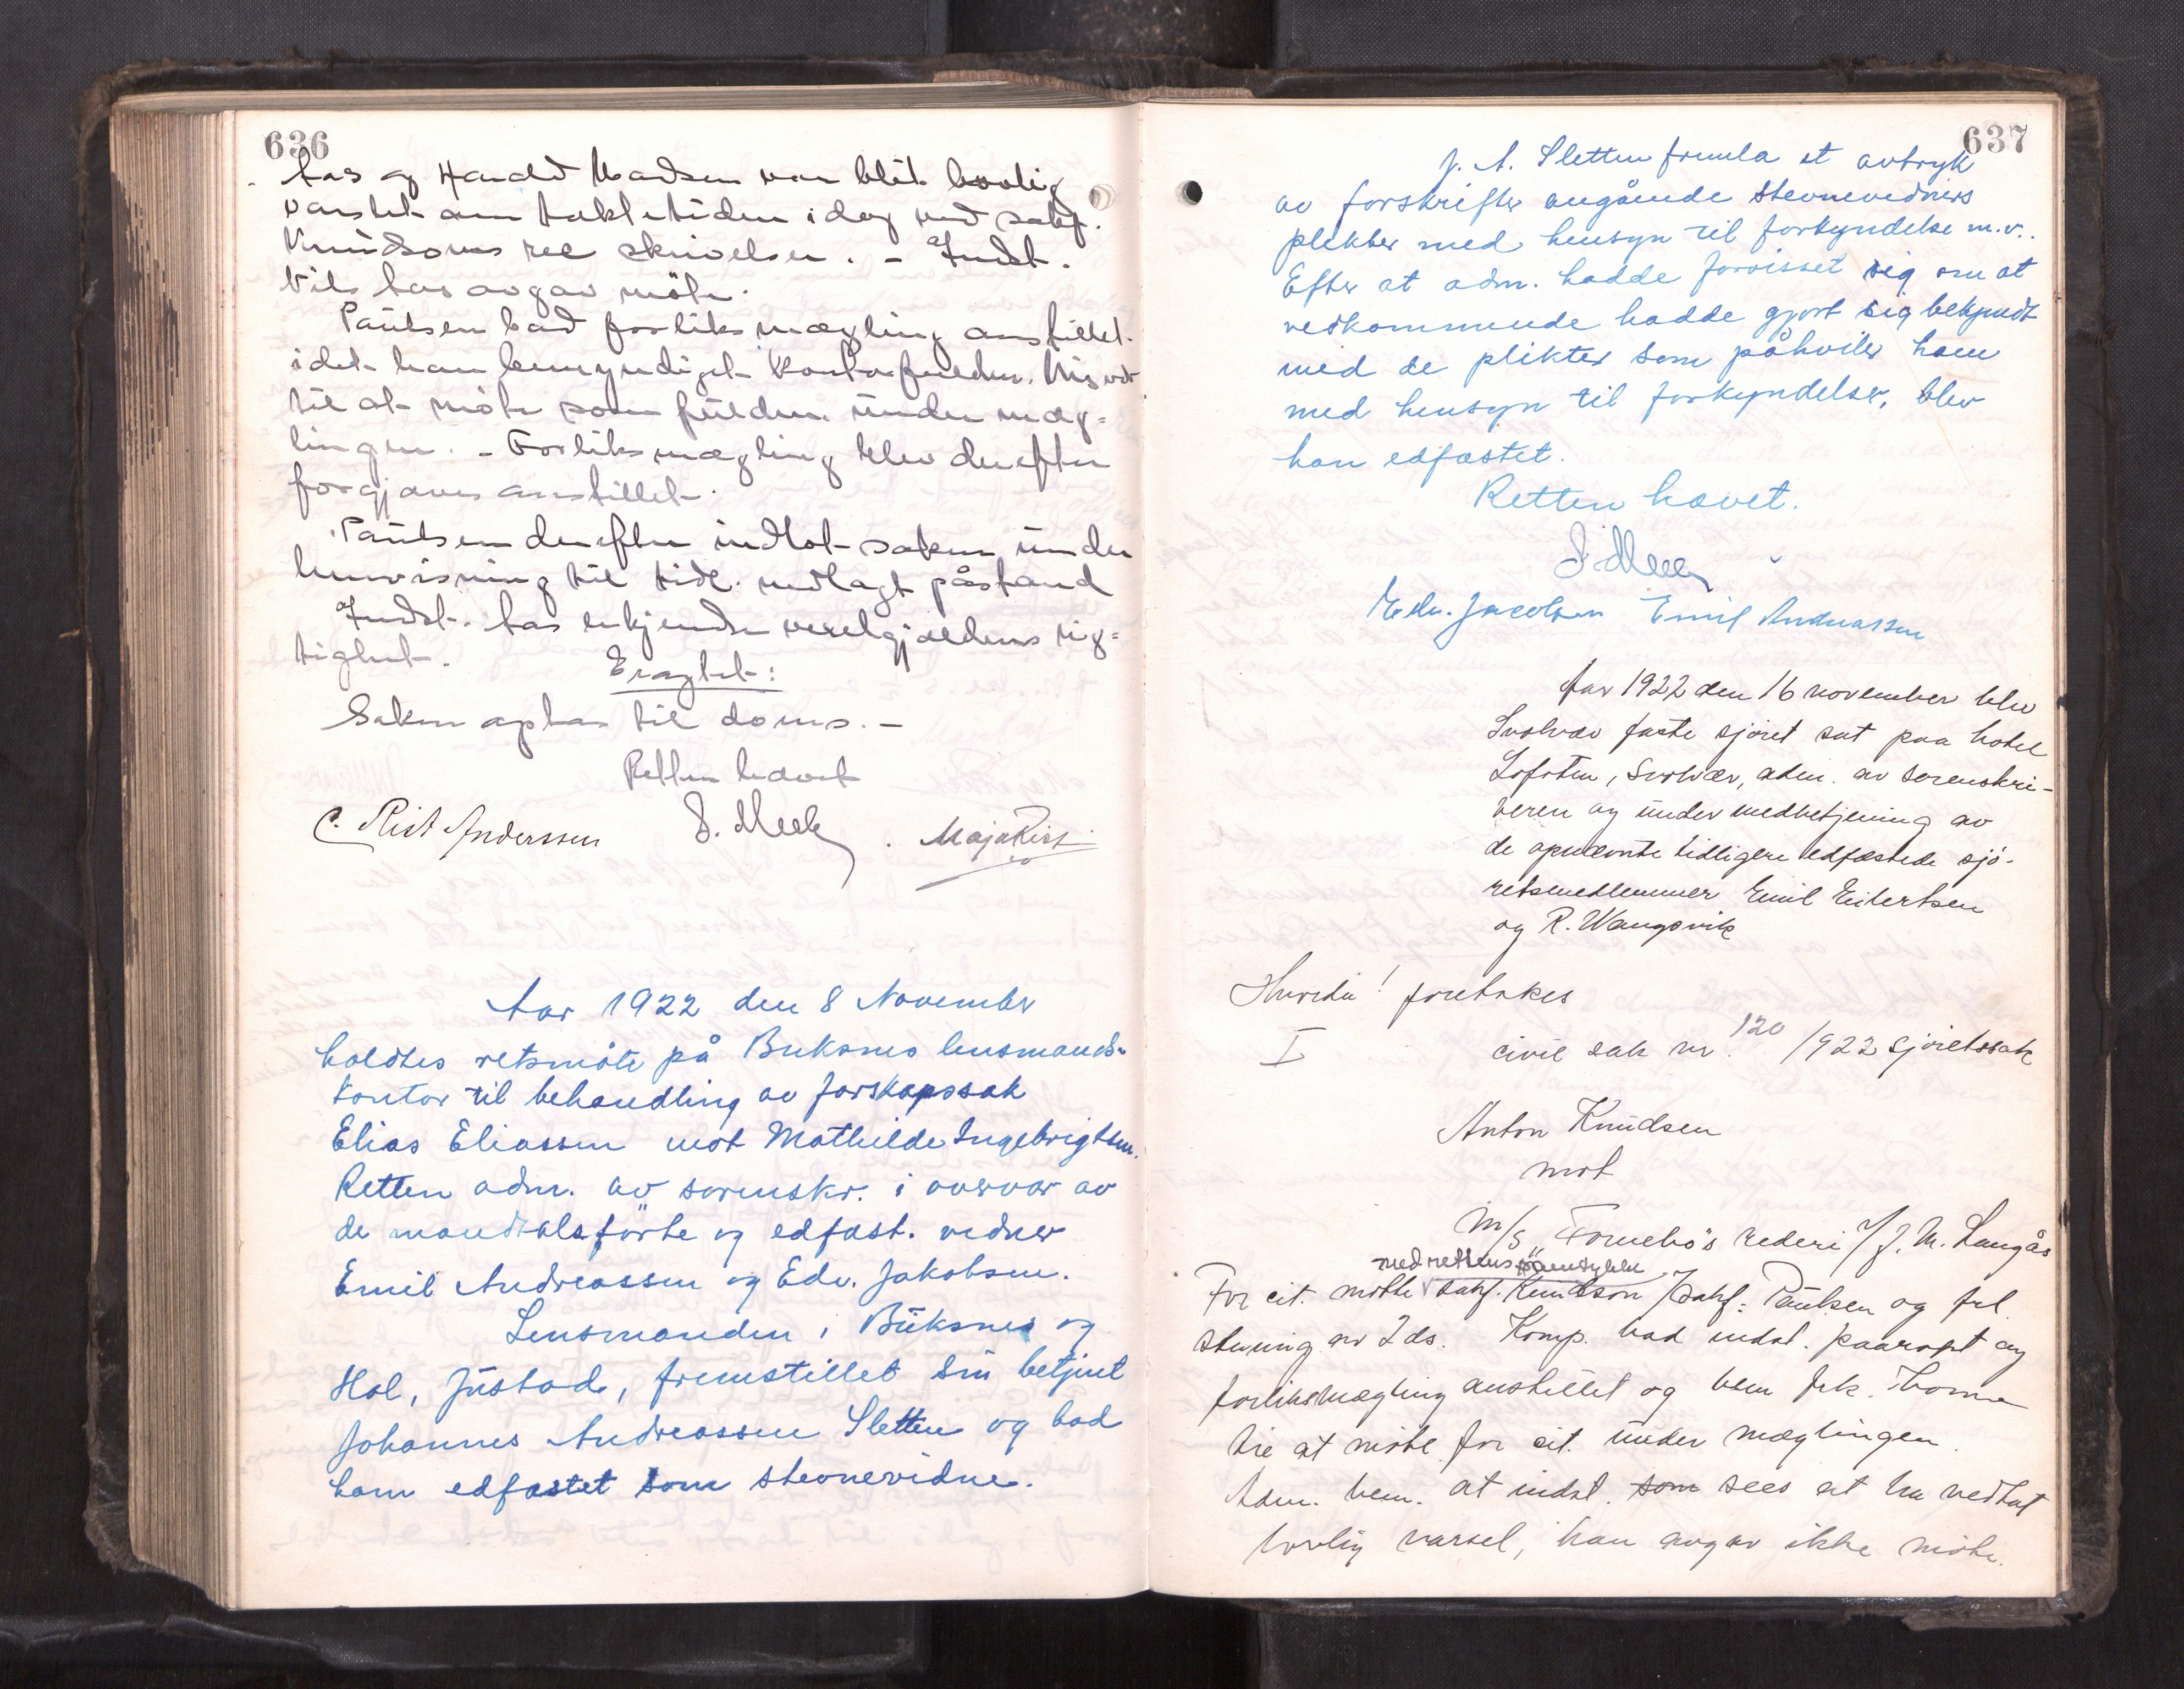 636
Aas og Harald Madsen var blit lovlig
varslet om takletiden idag ved sakf.
Knudsons rec skrivelser. - Indst.
Nils Aas avgav møte.
Paulsen bad forliksmægling anstillet
idet han bemyndiget kontorfuldm.
til at møte som fuldm. under mæg-
lingen. - Forliksmægling blev derefter
forgjæves anstillet.
Paulsen derefter indlot saken under
henvisning til tidl. nedlagt påstand
Indst. Aas erkjendte vexelgjældens rig-
tighet.
Eragtet:
Saken optas til doms. -
Retten hævet
C. Rist Anderssen
Maja Rist
Aar 1922 den 8 November
holdtes retsmöte på Buksnes lensmands-
kontor til behandling av farskapssak
Elias Eliassen mot Mathilde Ingebrigtsen.
Retten adm. av sorenskr. i overvær av
de mandtalsförte og edfæst. vidner
Emil Andreassen og Edv. Jakobsen.
Lensmanden i Buksnes og
Hol, Justad, fremstillet sin betjent
Johannes Andreassen Sletten og bad
ham edfæstet som stevnevidne.
637
J. A. Sletten fremla et avtryk
av forskrifter angående stevnevidners
plikter med hensyn til forkyndelse m.v..
Efter at adm. hadde forvisset sig om at
vedkommende hadde gjort sig bekjendt
med de plikter som påhviler ham
med hensyn til forkyndelser, blev
han edfæstet.
Retten hævet.
Edv. Jacobsen Emil Andreassen
Aar 1922 den 16 november blev
Svolvær faste sjöret sat paa hotel
Lofoten, Svolvær, adm. av sorenskri-
veren og under medbetjening av
de opnævnte tidligere edfæstede sjö-
retsmedlemmer Emil Eilertsen
og R. Wangsvik
Hvorda! foretakes
I civil sak nr. 120/922 sjöretssak
Anton Knudsen
mot
M/S "Fornebo"s rederi v/ J. M. Langås
med rettens samtykke
For cit. mötte sakf. Knudson for sakf. Paulsen og frl.
stevning av 2 ds. Komp. bad indst. paaropt og
forliksmægling anstillet og bem. frk. Thorne
til at möte for cit. under mæglingen.
Adm. bem. at indst. som sees at ha vedtat
lovlig varsel, han avgav ikke möte.